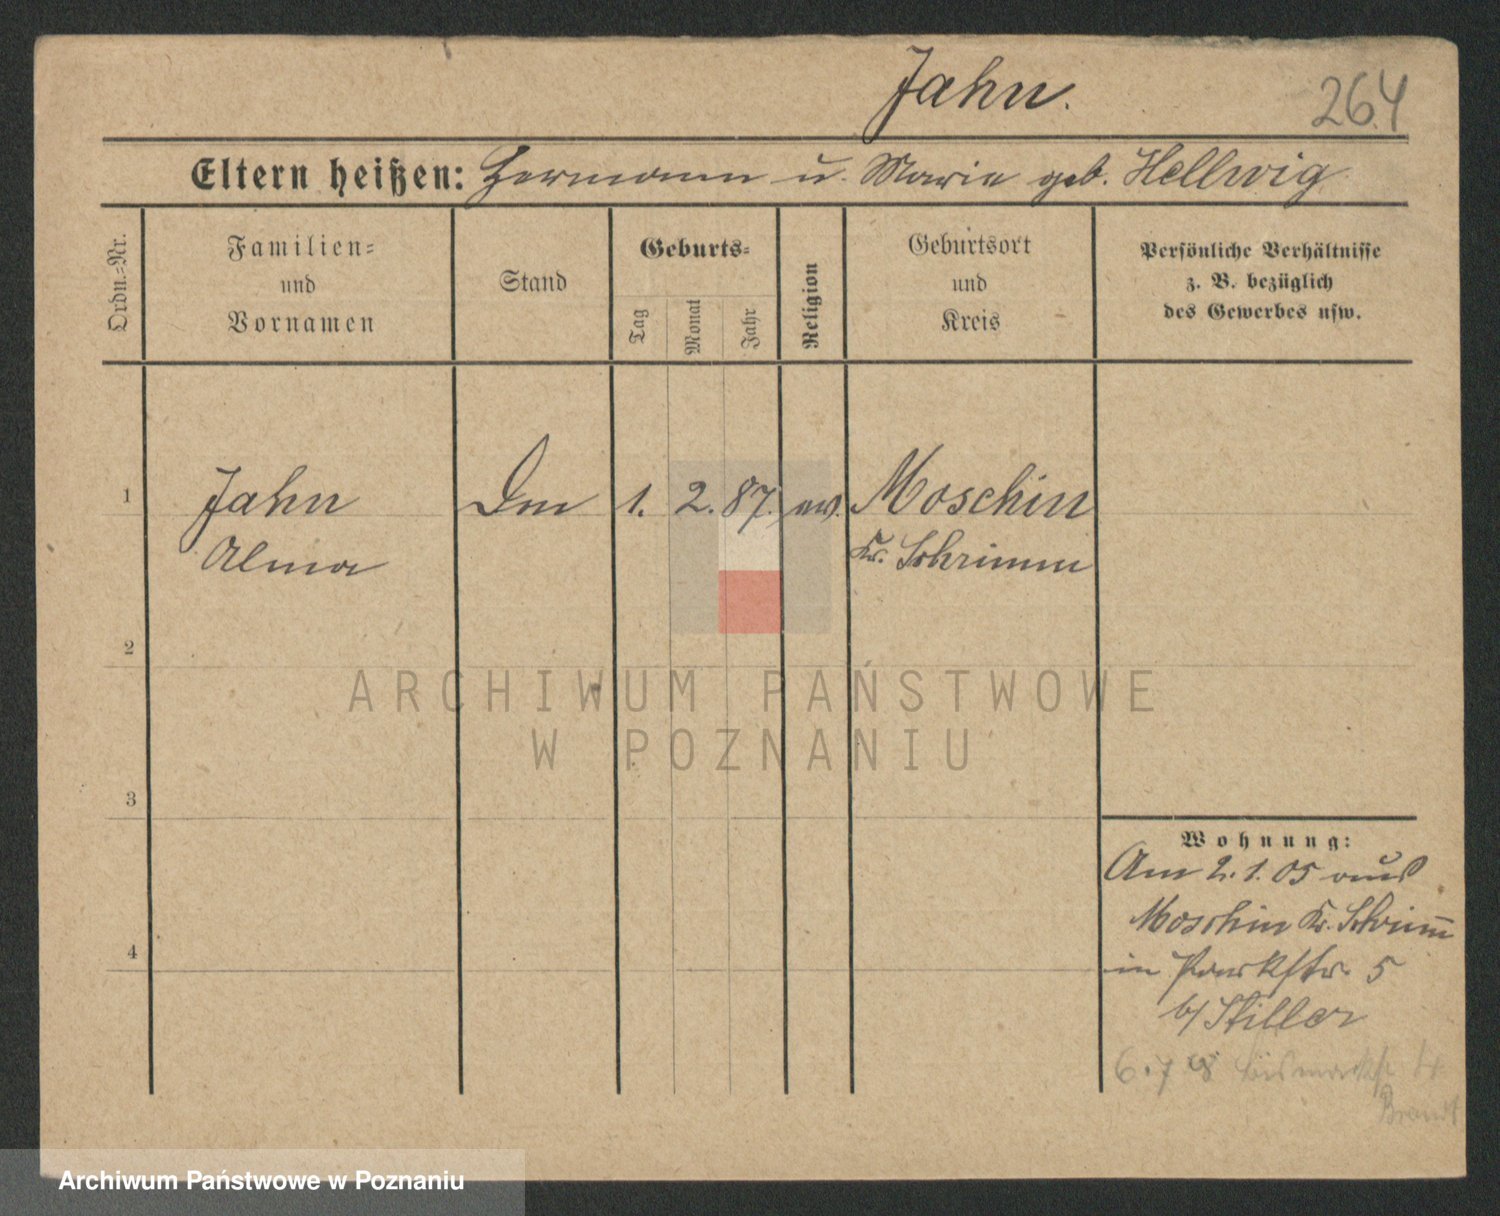 Jahn.
264
Eltern heißen: Hermann u. Marie geb. Hellwig
Ordn.=Nr.
Familien=
und
Vornamen
Stand
Geburts=
Tag
Monat
Jahr
Religion
Geburtsort
und
Kreis
Persönliche Verhältnisse
z. B. bezüglich
des Gewerbes usw.
1
Jahn
Alma
1. 2. 87. ev.
Moschin
Kr. Schrimm
2
3
4
Wohnung:
Am 2. 1. 05 aus
Moschin Kr. Schrimm
in Parkstr. 5
b/ Stiller
6.7 Bismarckst
Brandt
ARCHIWUM PAŃSTWOWE
W POZNANIU
Archiwum Państwowe w Poznaniu